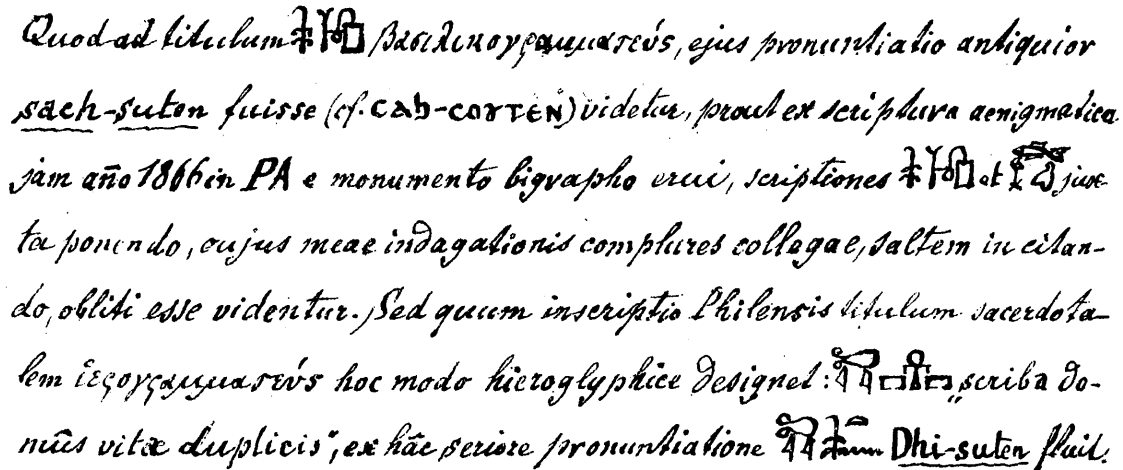 Quod ad titulum βασιλικογραμματεύς, ejus pronuntiatio antiquior
sach-suten fuisse (cf. ⲥⲁϧ-ⲥⲟⲩⲧⲉⲛ) videtur, prout ex scriptura aenigmatica
jam año 1866 in PA e monumento bigrapho erui, scriptiones et jux-
ta ponendo, cujus meae indagationis complures collegae, saltem in citan-
do, obliti esse videntur. Sed quum inscriptio Philensis titulum sacerdota-
lem ἱερογραμματεύς hoc modo hieroglyphice designet: „scriba do-
mûs vitæ duplicis", ex hâc seriore pronuntiatione Dhi-suten fluit.